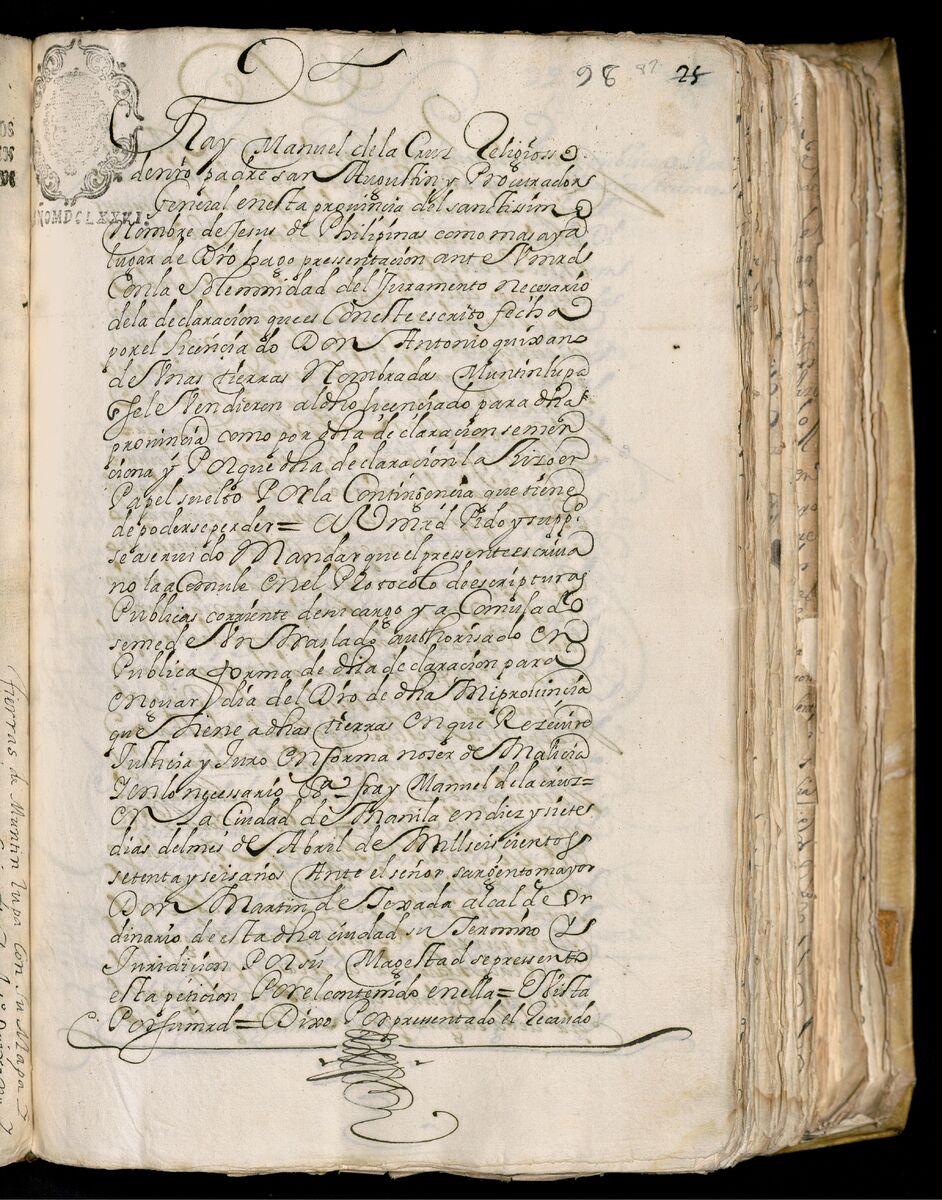 98 82 25
Fray Manuel dela Cruz Religioso
denro padre san Augustin y Procurador
General enesta provincia del sanctissimo
Nombre de Jesus de Philipinas como mas aya
lugar de Dro hago pressentacion ante Vmrd
Conla Solemnidad del Juramento necesario
dela declaracion que es Coneste escrito fecha
por el licenciado Don Antonio quixano
de Vnas tierras Nombradas Muntinlupa
sele Vendieron al dho licenciado para dha
provincia como por dha declaracion se men
ciona y Por que dha declaracion la hizo en
Papel suelto Por la Contingencia que tiene
de poderse perder = A Vmrd Pido y suppco
sea servido Mandar que el presente escriva
no la acomule en el Protocolo de escripturas
Publicas corriente de su cargo y a Comulado
se me de Vn traslado authorisado en
Publica forma de dha declaracion para
en guarda del Dro de dha Mi provincia
que tiene a dhas tierras en que Receuire
Justicia y Juro en forma no ser de Malicia
Yenlo necessario &a fray Manuel dela cruz =
En la Ciudad de Manila en diez y siete
dias del mes de Abril de Mill seis cientos
setenta y seis años Ante el señor sargento mayor
Don Martin de Texada alcalde or
dinario de esta dha ciudad su Termino y
Juridicion Por su Magestad se pressento
esta peticion Por el contenido en ella = Vista
Por su mrd = Dixo Por presentado el Recaudo
ÑOMDCLXXVI.
tierras de Muntin lupa Con su Mapa